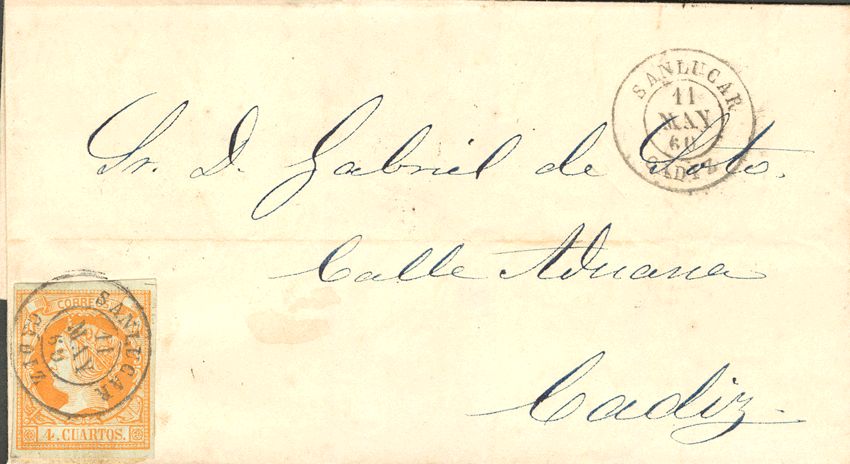 SANLUCAR
11
MAY
60
CADIZ
Sr. D. Gabriel de Soto.
Calle Aduana
Cadiz.
CORREOS
SANLUCAR
11
MAY
60
CADIZ
4. CUARTOS.